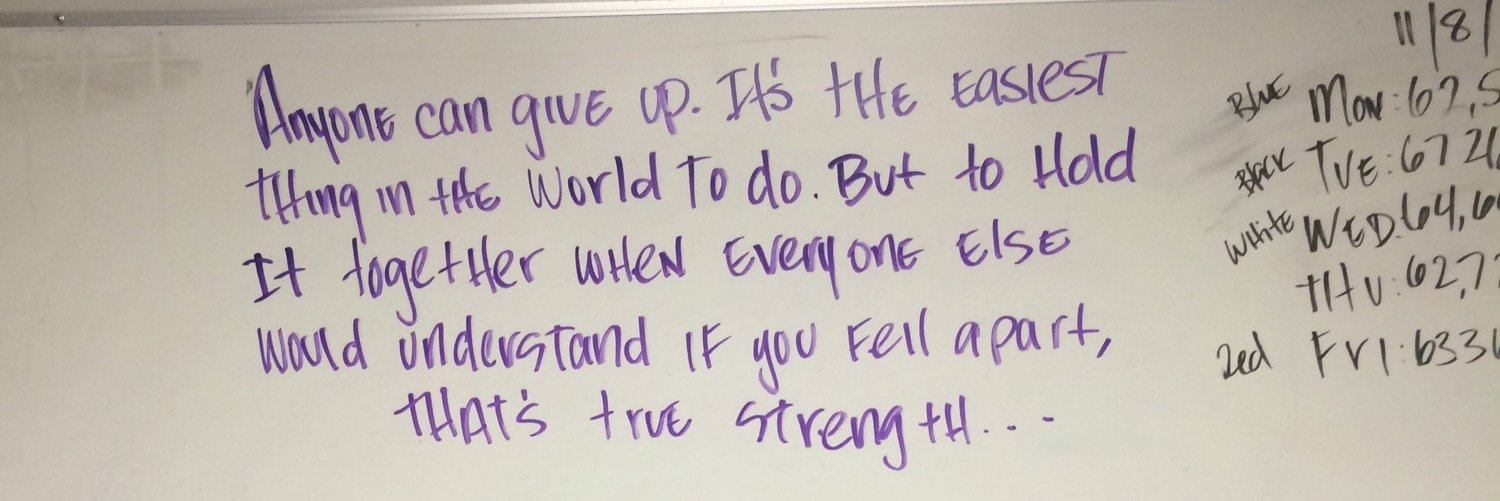 Anyone can give up. It's the easiest
thing in the world to do. But to hold
it together when everyone else
would understand if you fell apart,
that's true strength...
11/8/
Blue Mon: 62,5
Black Tue: 67 26
White Wed. 64,6
Thu: 62,7
Red Fri: 633